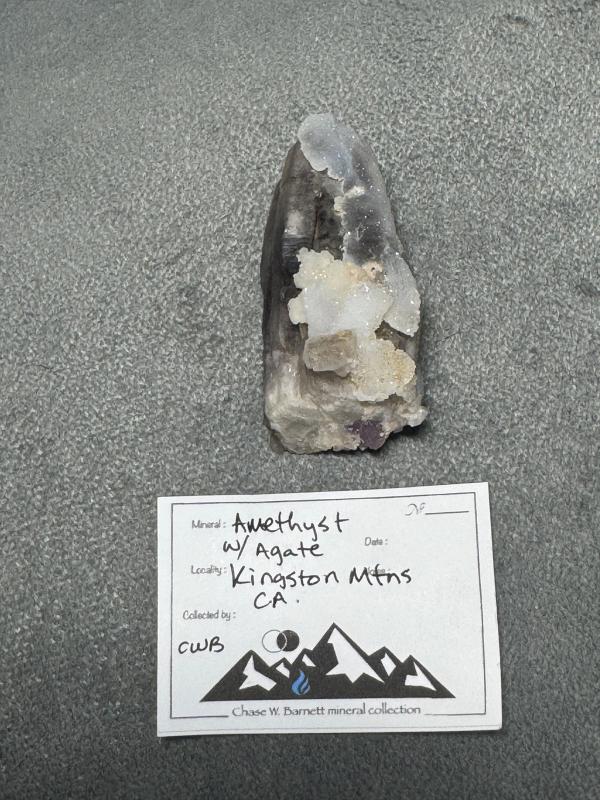 Mineral: Amethyst
w/ Agate
Nº
Date:
Locality: Kingston Mtns
CA.
Collected by:
CWB
Chase W. Barnett mineral collection